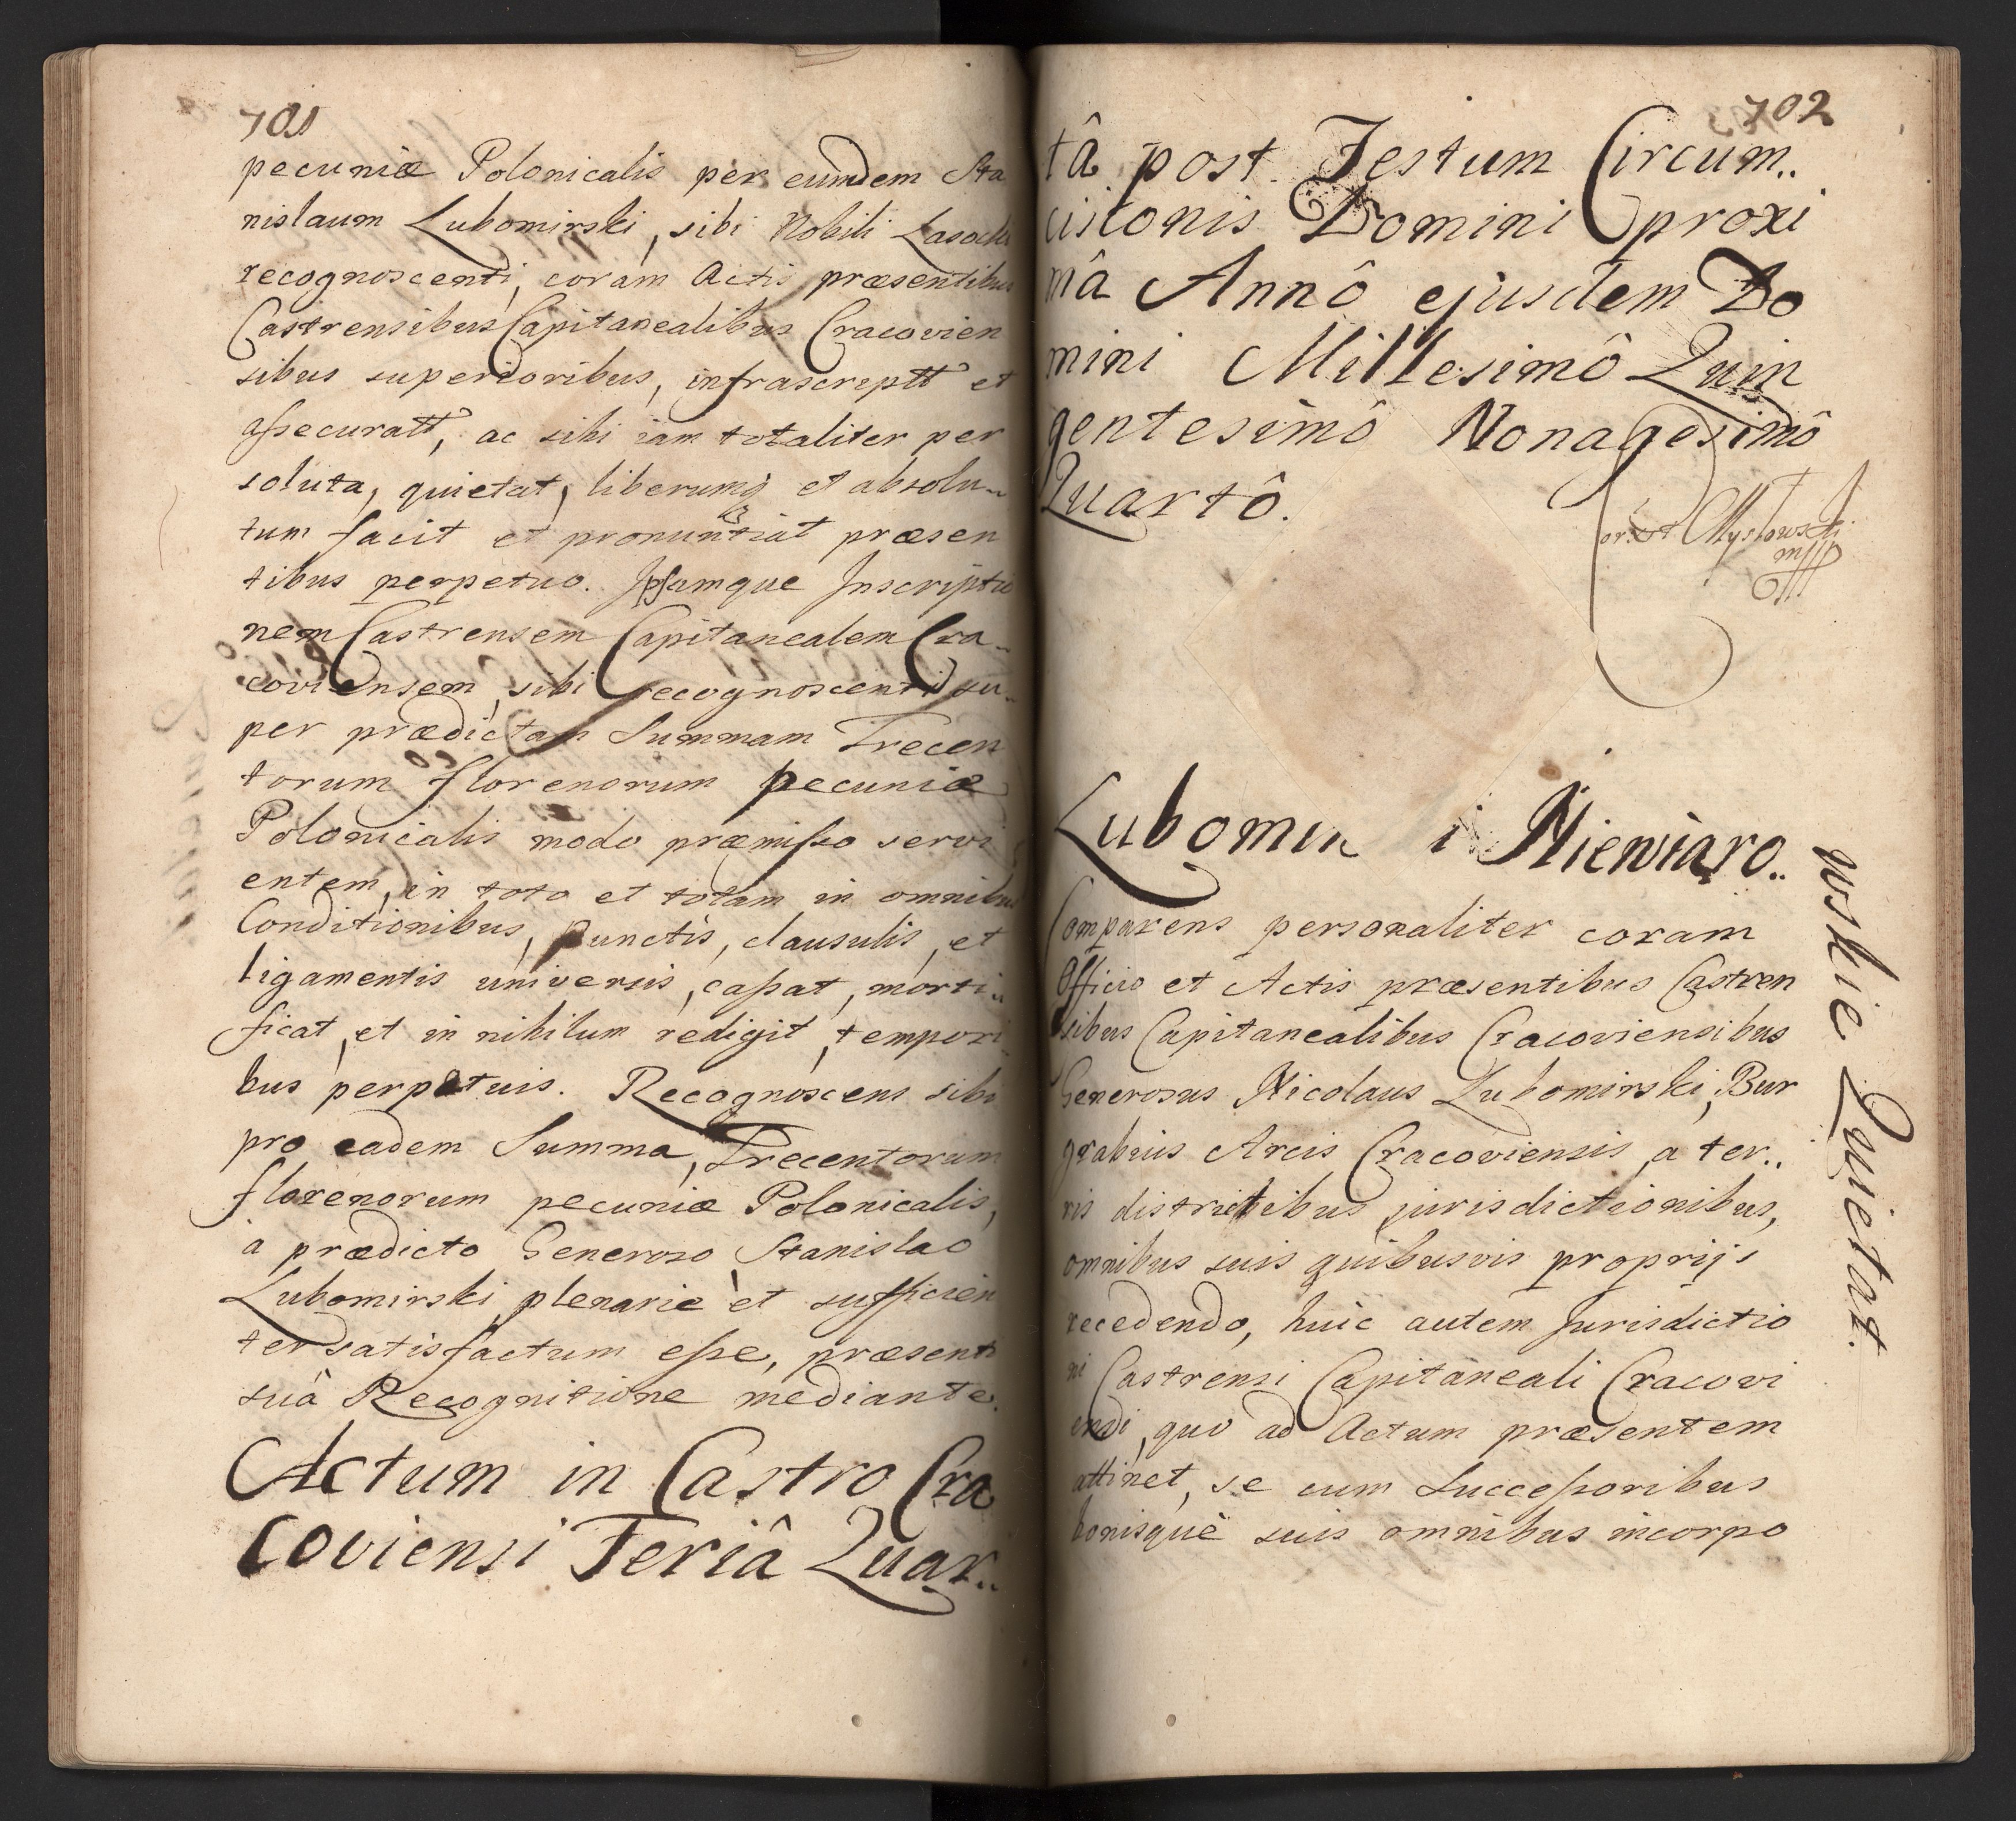 701
pecuniæ Polonicalis per eundem Sta
nislaum Lubomirski, sibi Nobili
recognoscenti, coram Actis præsentibus
Castrensibus Capitanealibus Cracovien
sibus superioribus, infrascriptt et
assecuratt, ac sibi iam totaliter per
soluta, quietat, liberumq et absolu..
tum facit et pronuntiat præsen
tibus perpetuo. Ipsamque Inscriptio
nem Castrensem Capitanealem Cra..
coviensem, sibi recognoscenti su..
per prædictam Summam Trecen
torum florenorum pecuniæ
Polonicalis modo præmisso servi
entem, in toto et totam in omnibus
Conditionibus, punctis, clausulis, et
ligamentis universis, cassat, morti..
ficat, et in nihilum redigit, tempori
bus perpetuis. Recognoscens sibi
pro eadem Summa, Trecentorum
florenorum pecuniæ Polonicalis,
à prædicto Generoso Stanislao
Lubomirski plenariè et sufficien
ter satisfactum esse, præsenti
suâ Recognitione mediante.
Actum in Castro Cra
coviensi Feriâ Quar..
702
tâ post Festum Circum..
cisionis Domini proxi
mâ Annô ejusdem Do
mini Millesimô Quin
gentesimô Nonagesimô
Quartô.
Lubomir i Niewiaro..
wskie Quietat.
Comparens personaliter coram
Officio et Actis præsentibus Castren
sibus Capitanealibus Cracoviensibus
Generosus Nicolaus Lubomirski, Bur
grabius Arcis Cracoviensis, a ter..
ris districtibus jurisdictionibus,
omnibus suis quibusvis proprijs
recedendo, huic autem Jurisdictio
ni Castrensi Capitaneali Cracovi
ensi, quo ad Actum præsentem
attinet, se cum Successoribus
bonisquè suis omnibus incorpo